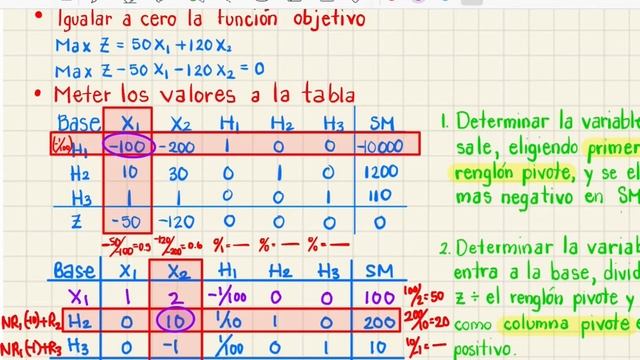 • Igualar a cero la función objetivo
Max Z = 50X₁ + 120X₂
Max Z - 50X₁ - 120X₂ = 0
• Meter los valores a la tabla
Base X₁ X₂ H₁ H₂ H₃ SM
(-1/100) H₁ -100 -200 1 0 0 -10000
H₂ 10 30 0 1 0 1200
H₃ 1 1 0 0 1 110
Z -50 -120 0 0 0 0
-50/-100=0.5 -120/-200=0.6 %=— %=— %=—
Base X₁ X₂ H₁ H₂ H₃ SM
X₁ 1 2 -1/100 0 0 100 100/2=50
NR₁(-10)+R₂ H₂ 0 10 1/10 1 0 200 200/10=20
NR₁(-1)+R₃ H₃ 0 -1 1/100 0 1 10 10/-1=—
1. Determinar la variable
sale, eligiendo primer
renglón pivote, y se el
mas negativo en SM
2. Determinar la variab
entra a la base, divid
Z ÷ el renglón pivote y
como columna pivote e
positivo.